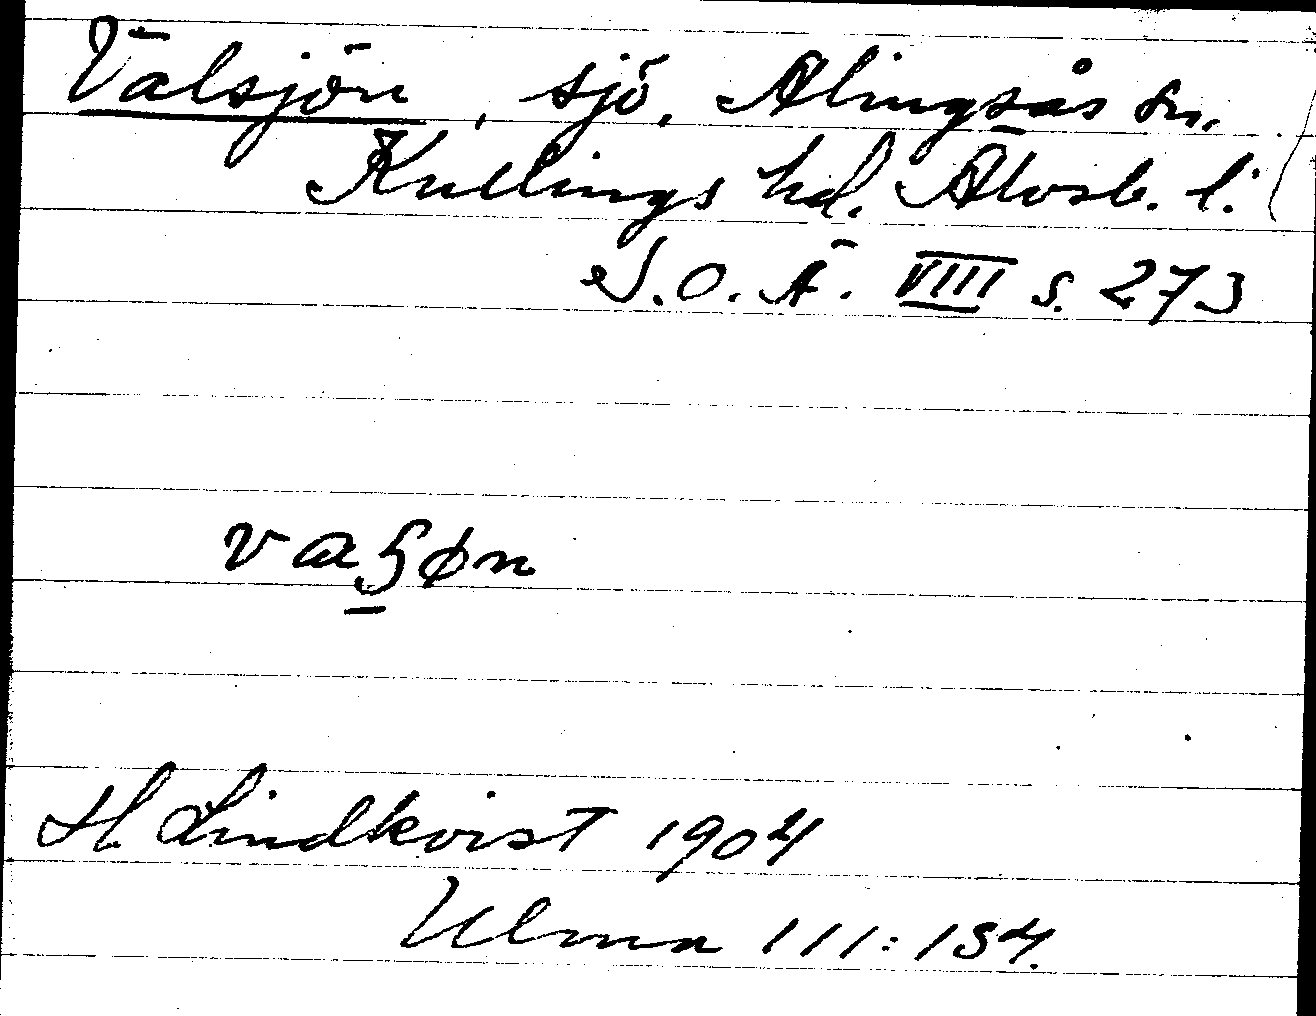 Välsjön, sjö, Alingsås sn.
Kullings hd. Älvsb. l.
S.O.Ä. VIII s. 273
væʂøn
H. Lindkvist 1904
Ulma 111:154.